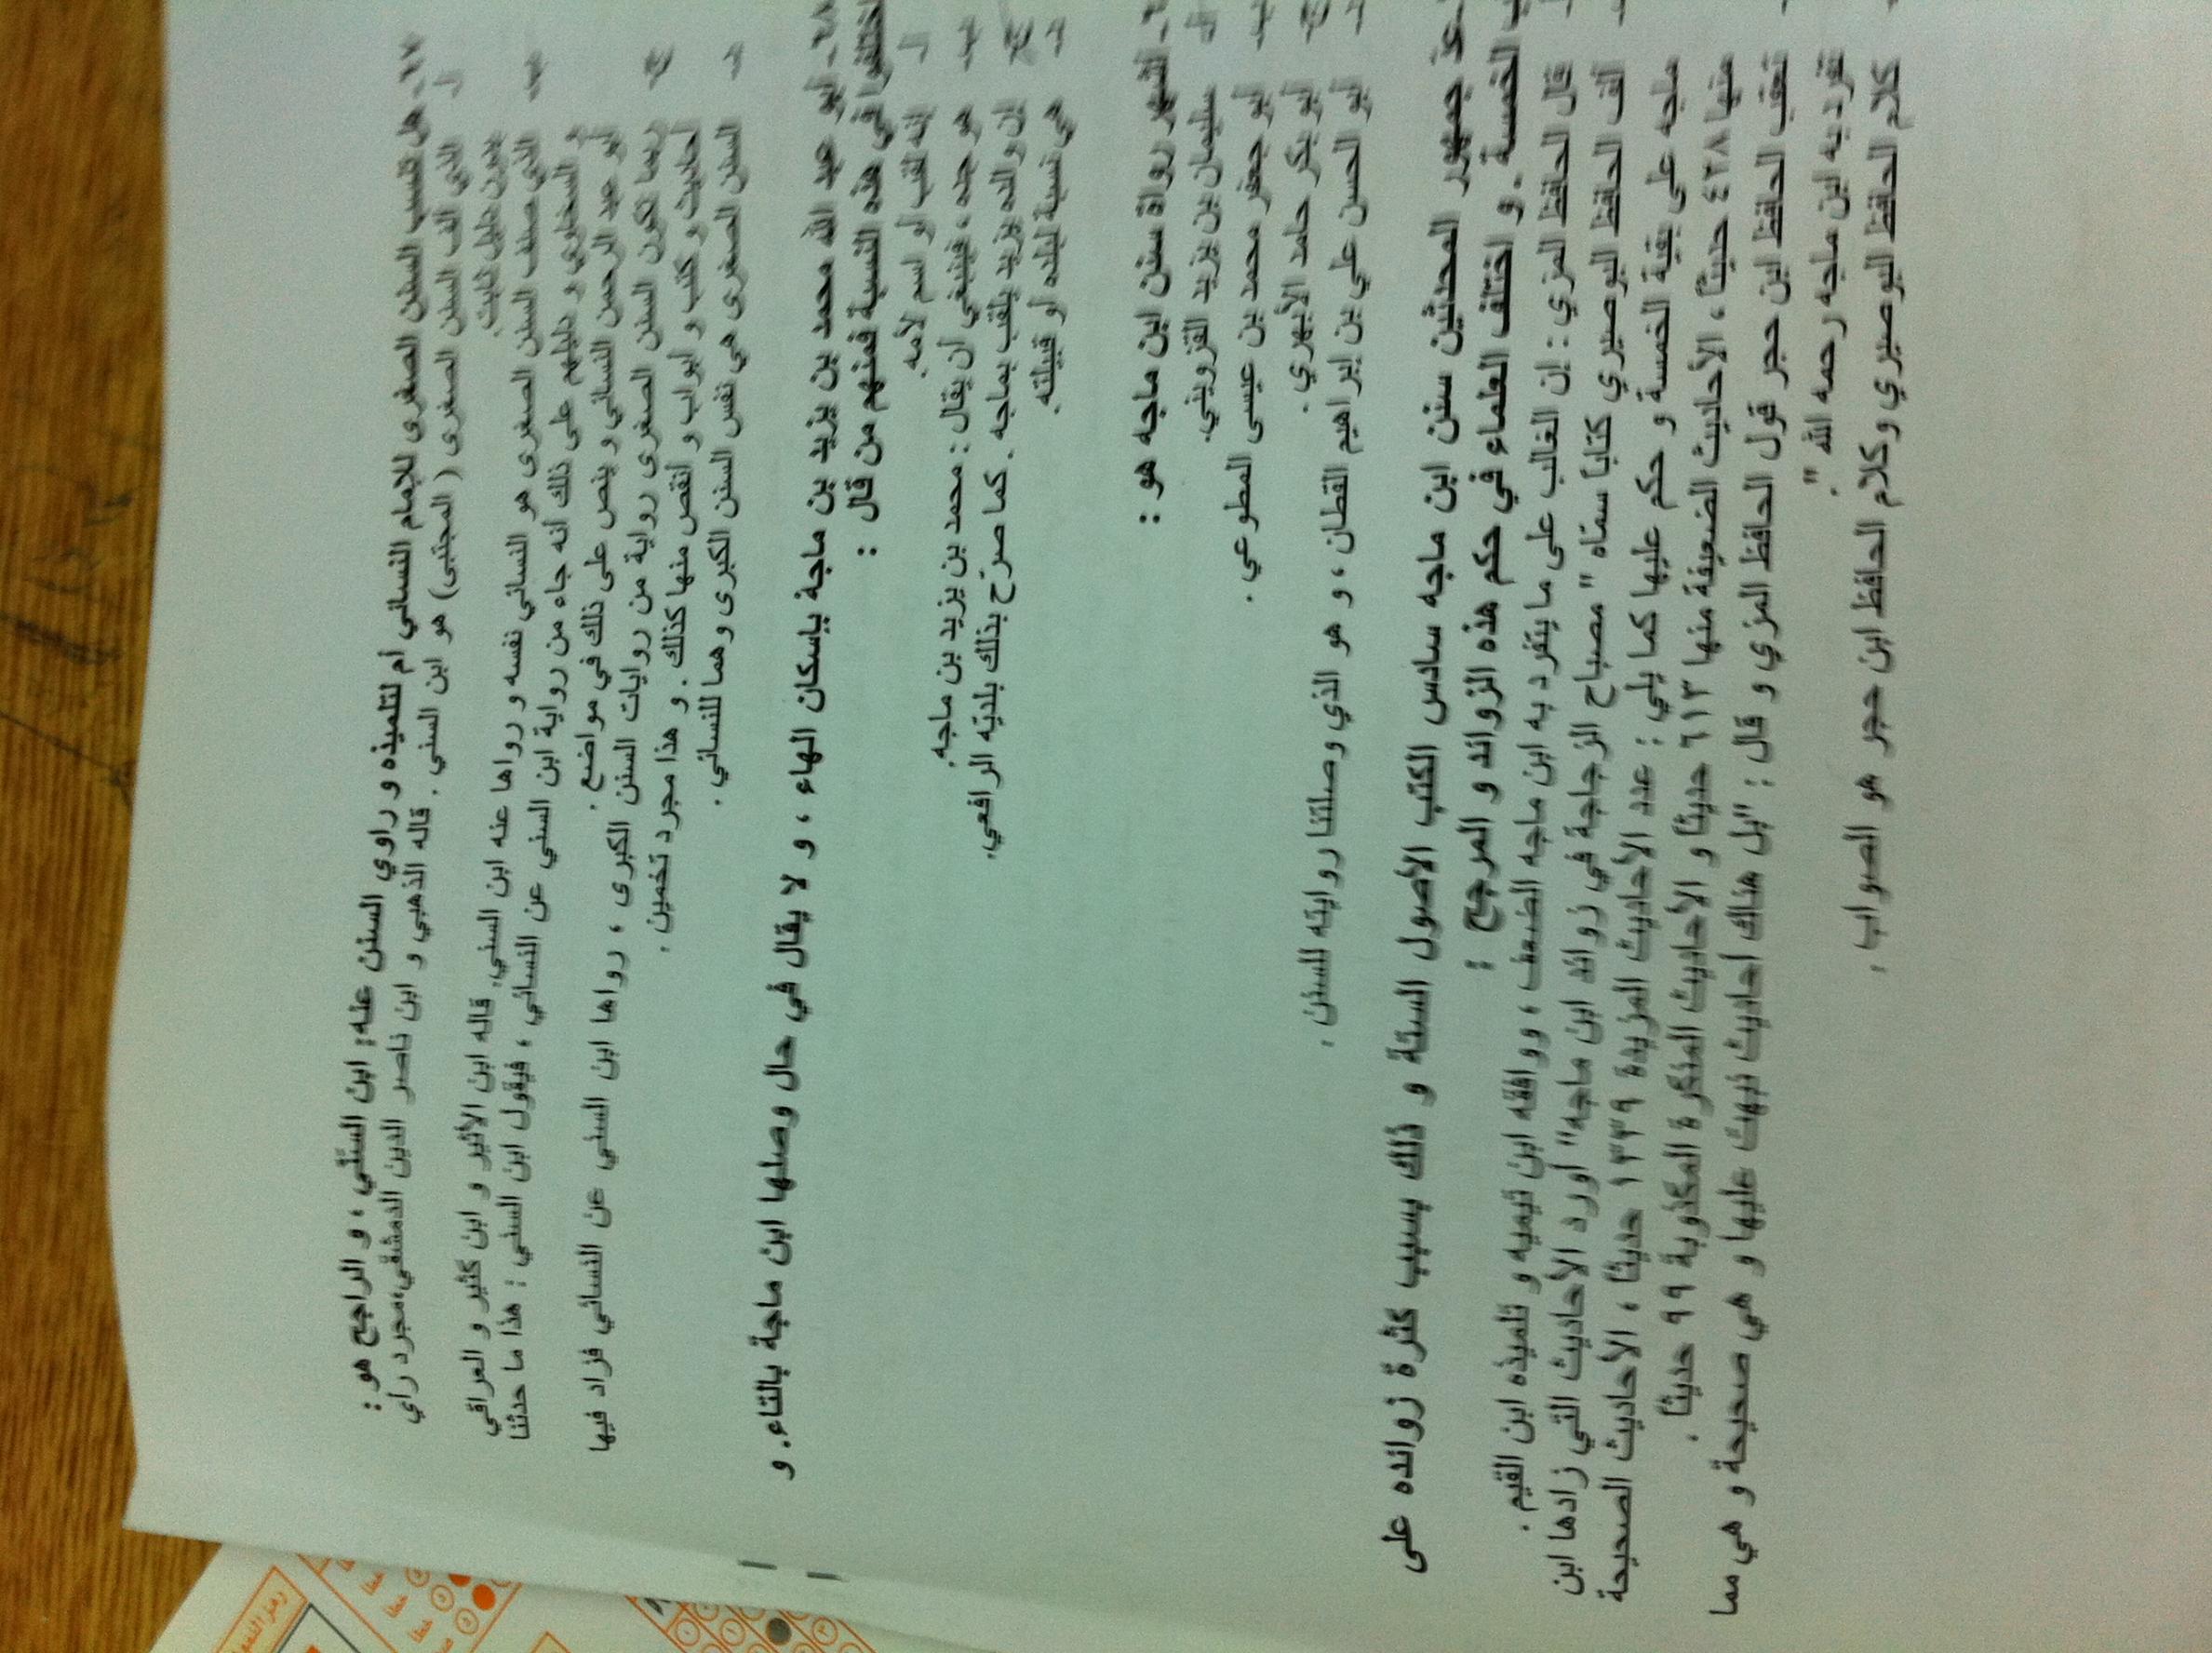 ٦٧- هل تنسب السنن الصغرى للإمام النسائي أم لتلميذه و راوي السنن عنه: ابن السنّي ، و الراجح هو :
أ- الذي ألف السنن الصغرى ( المجتبى) هو ابن السني . قاله الذهبي و ابن ناصر الدين الدمشقي،مجرد رأي
بدون دليل ثابت.
ب- الذي صنف السنن الصغرى هو النسائي نفسه و رواها عنه ابن السني. قاله ابن الأثير و ابن كثير و العراقي
و السخاوي و دليلهم على ذلك أنه جاء من رواية ابن السني عن النسائي ، فيقول ابن السني : هذا ما حدثنا
أبو عبد الرحمن النسائي و ينص على ذلك في مواضع .
ج- ربما تكون السنن الصغرى رواية من روايات السنن الكبرى ، رواها ابن السني عن النسائي فزاد فيها
أحاديث و كتب و أبواب و أنقص منها كذلك . و هذا مجرد تخمين .
د- السنن الصغرى هي نفس السنن الكبرى وهما للنسائي .
٦٨- أبو عبد الله محمد بن يزيد بن ماجة بإسكان الهاء ، و لا يقال في حال وصلها ابن ماجة بالتاء. و
اختلفوا في هذه النسبة فمنهم من قال :
أ- إنه لقب أو اسم لأمه.
ب- هو جده ، فينبغي أن يقال : محمد بن يزيد بن ماجه.
ج- إن والده يزيد يلقب بماجه . كما صرّح بذلك بلديّه الرافعي.
د- هي نسبة لبلده أو قبيلته.
أشهر رواة سنن ابن ماجه هو :
أ- سليمان بن يزيد القزويني.
ب- أبو جعفر محمد بن عيسى المطوعي .
ج- أبو بكر حامد الأبهري .
د- أبو الحسن علي بن إبراهيم القطان ، و هو الذي وصلتنا روايته للسنن .
عدّ جمهور المحدثين سنن ابن ماجه سادس الكتب الأصول الستة و ذلك بسبب كثرة زوائده على
الخمسة . و اختلف العلماء في حكم هذه الزوائد و المرجح :
قال الحافظ المزي : إن الغالب على ما يتفرد به ابن ماجه الضعف ، ووافقه ابن تيميه و تلميذه ابن القيم .
ألف الحافظ البوصيري كتاباً سمّاه " مصباح الزجاجة في زوائد ابن ماجه" أورد الأحاديث التي زادها ابن
ماجه على بقية الخمسة و حكم عليها كما يلي : عدد الأحاديث المزيدة ١٣٣٩ حديثاً ، الأحاديث الصحيحة
منها ٤٢٨ حديثاً ، الأحاديث الضعيفة منها ٦١٣ حديثاً و الأحاديث المنكرة المكذوبة ٩٩ حديثاً .
تعقب الحافظ ابن حجر قول الحافظ المزي و قال : "بل هناك أحاديث نبهت عليها و هي صحيحة و هي مما
تفرد به ابن ماجه رحمه الله ".
كلام الحافظ البوصيري وكلام الحافظ ابن حجر هو الصواب .